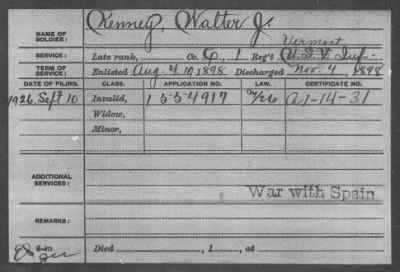 NAME OF SOLDIER: Kenney, Walter J.
Vermont
SERVICE: Late rank, Co. C, 1 Reg't U.S.V. Inf.
TERM OF SERVICE: Enlisted Aug. 4, 1898 Discharged Nov. 4, 1898
DATE OF FILING. CLASS. APPLICATION NO. LAW. CERTIFICATE NO.
1926, Sept 10 Invalid, 1554917 A-1-14-31
Widow,
Minor,
ADDITIONAL SERVICES:
War with Spain
REMARKS:
Died , 1 , at